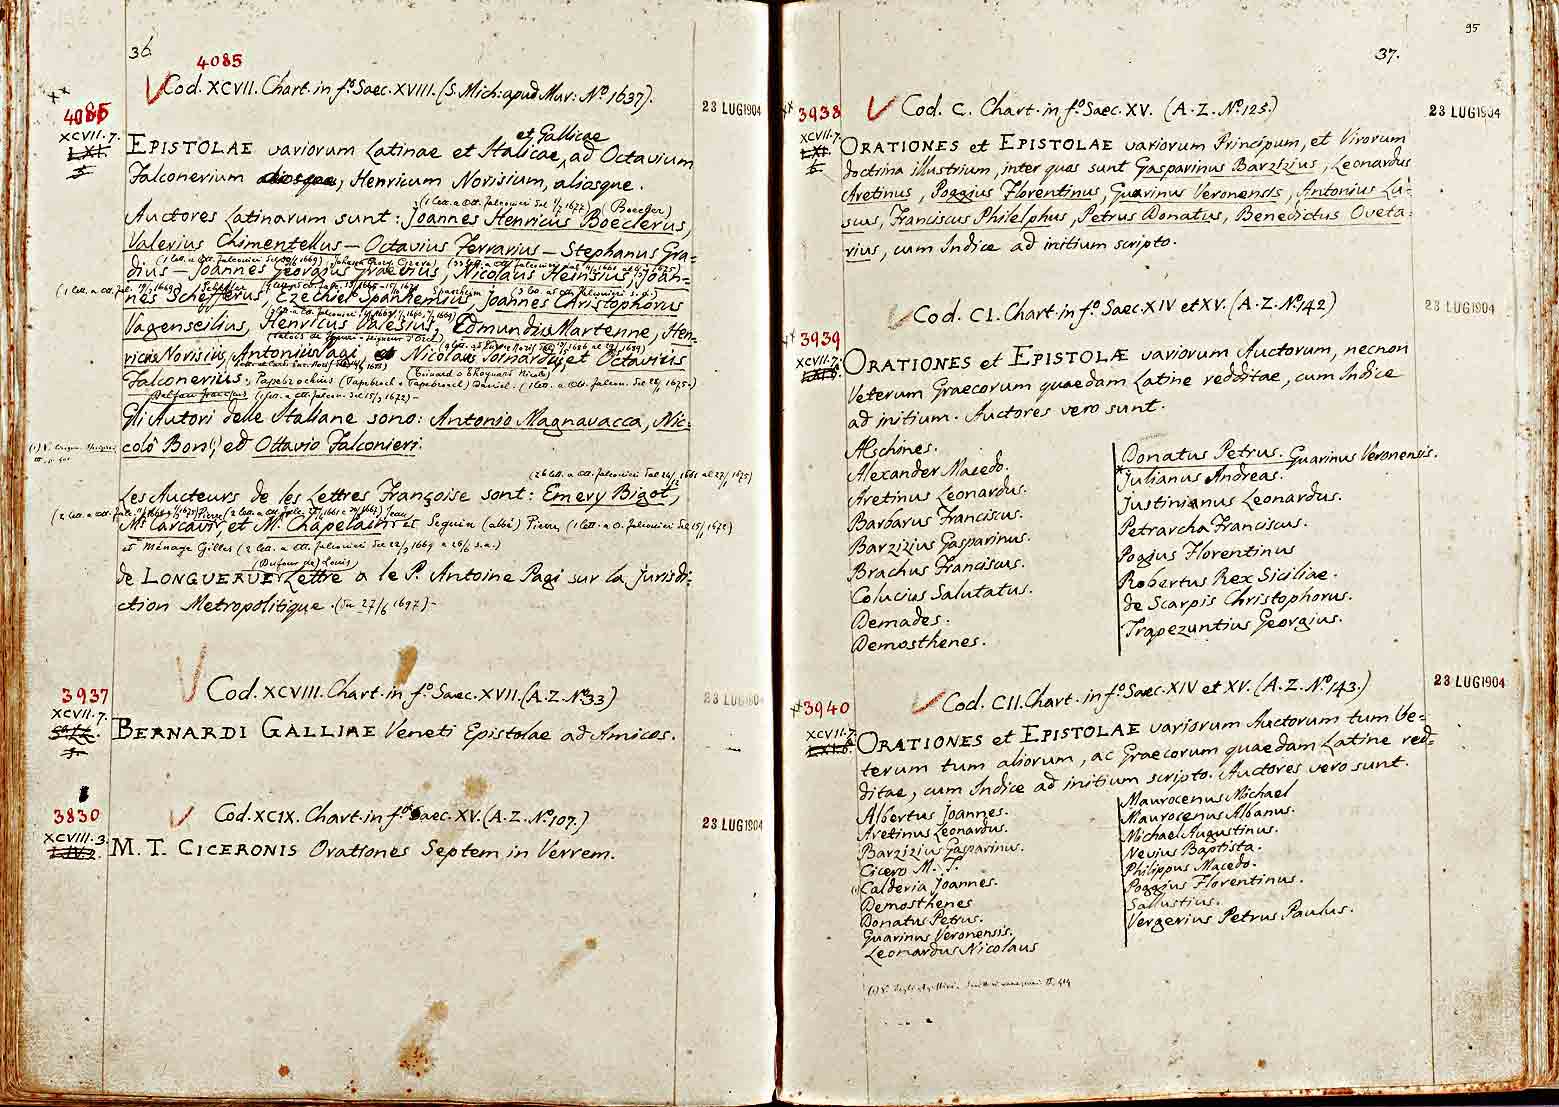 36
4085
Cod. XCVII. Chart. in fº. Saec. XVIII. (S. Mich: apud Mur: Nº. 1637).
23 LUG 1904
4085
XCVII. 7.
et Gallicae
EPISTOLAE variorum Latinae et Italicae, ad Octavium
Falconerium, Henricum Norisium, aliosque.
(Boecler)
Auctores Latinarum sunt: Joannes Henricus Boeclerus,
Valerius Chimentellus — Octavius Ferrarius — Stephanus Gra=
dius — Joannes Georgius Graevius, Nicolaus Heinsius, Joan=
nes Schefferus, Ezechiel Spanhemius Joannes Christophorus
Vagenseilius, Henricus Valesius, Edmundus Martenne, Hen=
ricus Norisius, Antonius Pagi, Nicolaus Toinardus, et Octavius
Falconerius. Papebrochius (Papebroch o Papebroeck) Daniel. (1 lett. a Ott. Falcon.
Gli Autori delle Italiane sono: Antonio Magnavacca, Nic=
colò Bon(1) ed Ottavio Falconieri.
Les Aucteurs de les Lettres Françoise sont: Emery Bigot,
Mr. Carcavy, et M. Chapelain et Seguin (abbé) Pierre (1 lett. a O. Falconieri
et Ménage Gilles (2 lett. a Ott. Falconieri
(Dufour de) Louis
de LONGUERUE Lettre a le P. Antoine Pagi sur la jurisdi=
ction Metropolitique. (Du 27/6 1697) -
3937
XCVII. 7.
Cod. XCVIII. Chart. in fº. Saec. XVII. (A. Z. Nº. 33)
23 LUG 1904
BERNARDI GALLIAE Veneti Epistolae ad Amicos.
3830
XCVIII. 3.
Cod. XCIX. Chart. in fº. Saec. XV. (A. Z. Nº. 107.)
23 LUG 1904
M. T. CICERONIS Orationes Septem in Verrem.
95
37.
3938
XCVII. 7.
Cod. C. Chart. in fº. Saec. XV. (A. Z. Nº. 125.)
23 LUG 1904
ORATIONES et EPISTOLAE variorum Principum, et Virorum
doctrina illustrium, inter quas sunt Gasparinus Barzizius, Leonardus
Aretinus, Poggius Florentinus, Guarinus Veronensis, Antonius Lu=
scus, Franciscus Philelphus, Petrus Donatus, Benedictus Oveta=
rius, cum Indice ad initium scripto.
3939
XCVII. 7.
Cod. CI. Chart. in fº. Saec. XIV et XV. (A. Z. Nº. 142)
23 LUG 1904
ORATIONES et EPISTOLÆ variorum Auctorum, necnon
Veterum Graecorum quaedam Latine redditae, cum Indice
ad initium. Auctores vero sunt.
Æschines.
Alexander Macedo.
Aretinus Leonardus.
Barbarus Franciscus.
Barzizius Gasparinus.
Brachus Franciscus.
Colucius Salutatus.
Demades.
Demosthenes.
Donatus Petrus. Guarinus Veronensis.
Julianus Andreas.
Justinianus Leonardus.
Petrarcha Franciscus.
Pogius Florentinus
Robertus Rex Siciliae.
de Scarpis Christophorus.
Trapezuntius Georgius.
3940
XCVII. 7.
Cod. CII. Chart. in fº. Saec. XIV et XV. (A. Z. Nº. 143.)
23 LUG 1904
ORATIONES et EPISTOLAE variorum Auctorum tum Ve=
terum tum aliorum, ac Graecorum quaedam Latine red=
ditae, cum Indice ad initium scripto. Auctores vero sunt.
Albertus Joannes.
Aretinus Leonardus.
Barzizius Gasparinus.
Cicero M. T.
(1) Calderia Joannes.
Demosthenes
Donatus Petrus.
Guarinus Veronensis.
Leonardus Nicolaus
Maurocenus Michael
Maurocenus Albanus.
Michael Augustinus.
Nevius Baptista.
Philippus Macedo.
Poggius Florentinus.
Sallustius.
Vergerius Petrus Paulus.